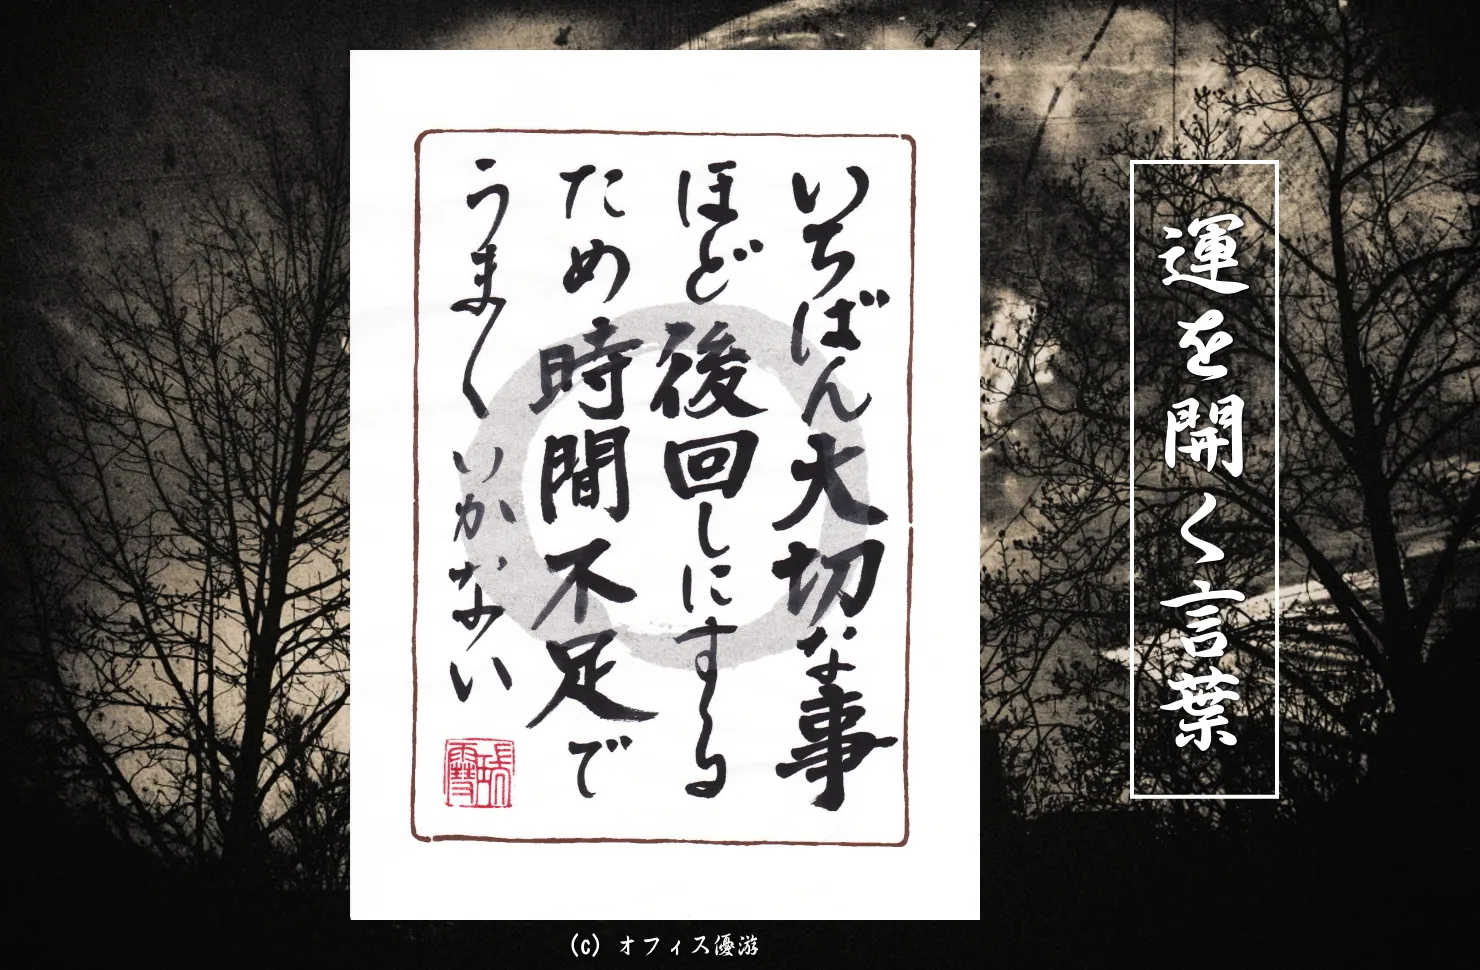 運を開く言葉
いちばん大切な事
ほど後回しにする
ため時間不足で
うまくいかない
(c) オフィス優游